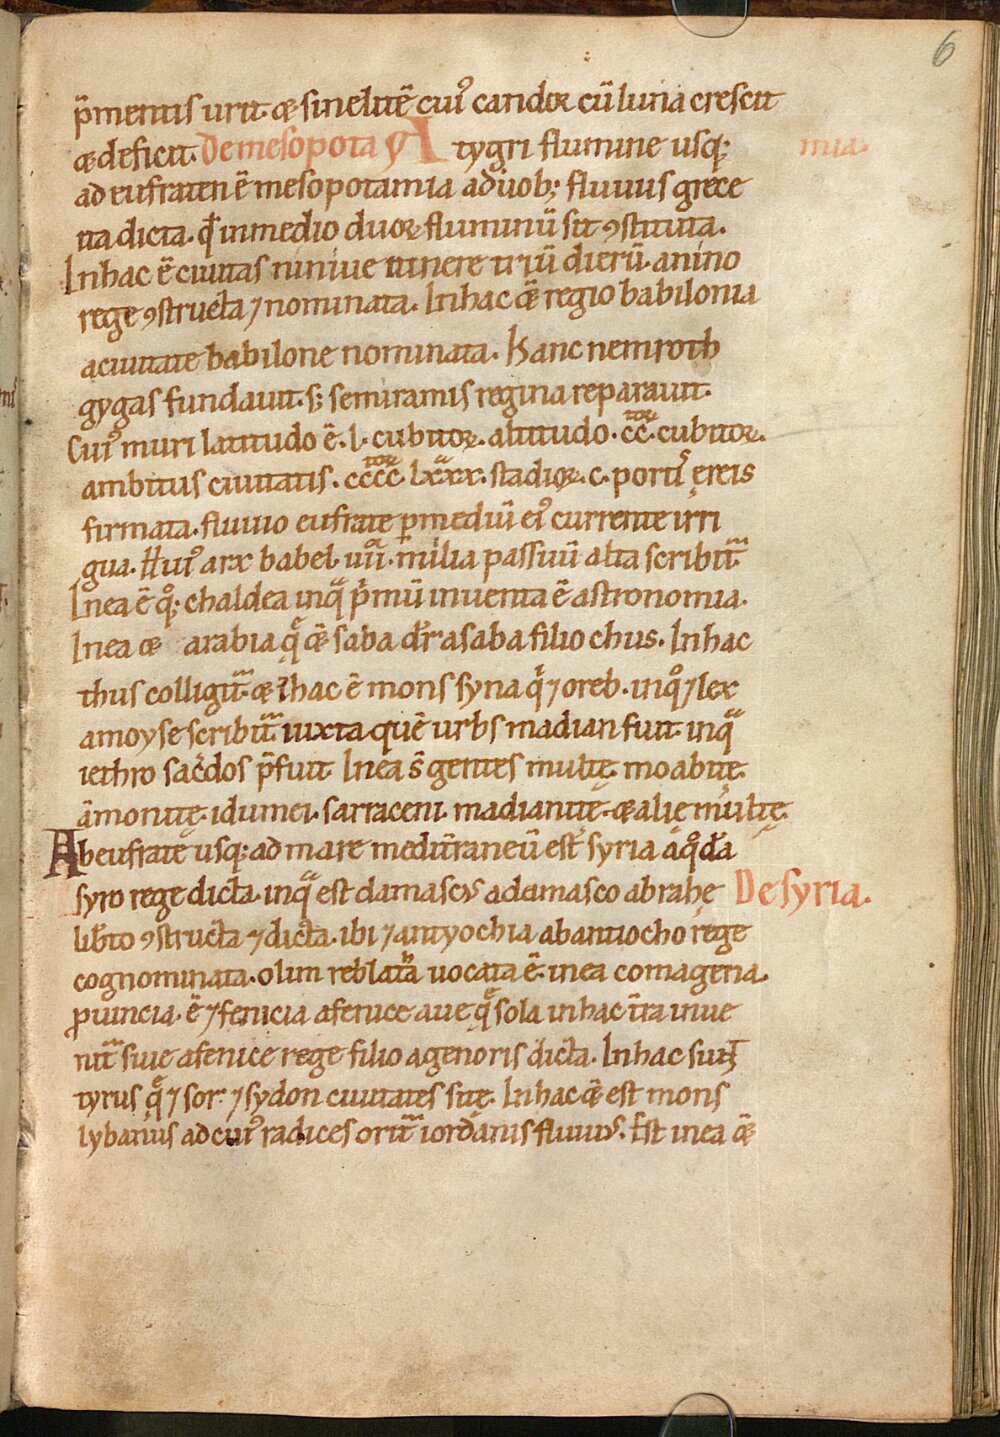 6
p̄mentis urit. & sinelitē cui᷒ candor cū luna crescit
& deficit. De mesopota mia. A tygri flumine usq;
ad eufraten ē mesopotamia a duob; fluuiis grece
ita dicta. q̄ in medio duoꝝ fluminū sit ꝯstituta.
In hac ē ciuitas niniue itinere triū dierū. a nino
rege ꝯstructa ⁊ nominata. In hac &̄ regio babilonia
a ciuitate babilone nominata. Hanc nemroth
gygas fundauit. s; semiramis regina reparauit.
Cui᷒ muri latitudo ē. l. cubitoꝝ. altitudo. cc̄. cubitoꝝ.
ambitus ciuitatis. cccc lxxx. stadioꝝ. c. portis ęreis
firmata. fluuio eufrate ꝑ mediū ei᷒ currente irri
gua. Hui᷒ arx babel. iiii. milia passuū alta scribit̄
In ea ē q̊; chaldea in qͣ pͥmū inuenta ē astronomia.
In ea & arabia q̄ &̄ saba dr̄ a saba filio chus. In hac
thus colligit̄. & ī hac ē mons syna qͥ ⁊ oreb. in qͦ ⁊ lex
a moyse scribit̄ iuxta quē urbs madian fuit. in qͣ
iethro sac̄dos p̄fuit. In ea s̄ gentes multę. moabitę.
āmonitę. idumei. sarraceni. madianitę. & alię multę.
Ab eufrate usq; ad mare medit̄raneū est syria a qͦdā
syro rege dicta. in qͣ est damascus a damasco abrahę De syria.
lib̄to ꝯstructa ⁊ dicta. ibi ⁊ antyochia ab antiocho rege
cognominata. olim reblata uocata ē. in ea comagena.
ꝓuincia. ē ⁊ fenicia a fenice aue q̄ sola in hac t̄ra inue
nit̄ siue a fenice rege filio agenoris dicta. In hac sunt
tyrus q̄ ⁊ sor. ⁊ sydon ciuitates sitę. In hac &̄ est mons
lybanus ad cui᷒ radices orit̄ iordanis fluuius. Est in ea &̄